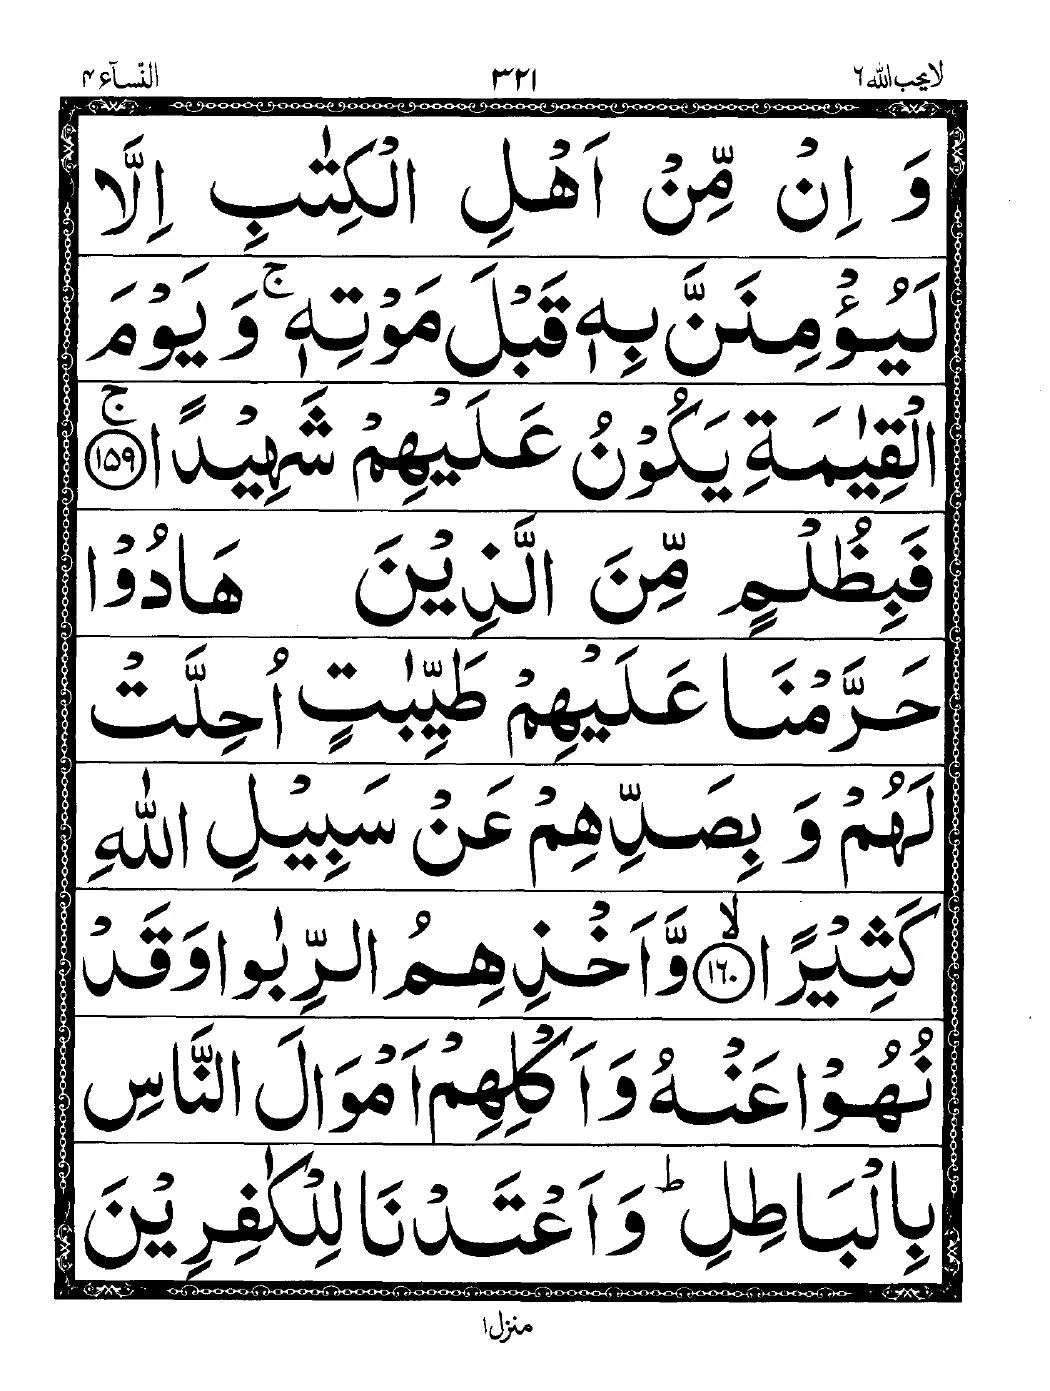 لا یحب اللہ ۶ ۳۲۱ النّسآء ۴
وَ اِنْ مِّنْ اَهْلِ الْكِتٰبِ اِلَّا
لَيُؤْمِنَنَّ بِهٖ قَبْلَ مَوْتِهٖ ۚ وَ يَوْمَ
الْقِيٰمَةِ يَكُوْنُ عَلَيْهِمْ شَهِيْدًا ۚ ۱۵۹
فَبِظُلْمٍ مِّنَ الَّذِيْنَ هَادُوْا
حَرَّمْنَا عَلَيْهِمْ طَيِّبٰتٍ اُحِلَّتْ
لَهُمْ وَ بِصَدِّهِمْ عَنْ سَبِيْلِ اللّٰهِ
كَثِيْرًا ۙ ۱۶۰ وَّ اَخْذِهِمُ الرِّبٰوا وَ قَدْ
نُهُوْا عَنْهُ وَ اَكْلِهِمْ اَمْوَالَ النَّاسِ
بِالْبَاطِلِ ؕ وَ اَعْتَدْنَا لِلْكٰفِرِيْنَ
منزل ۱